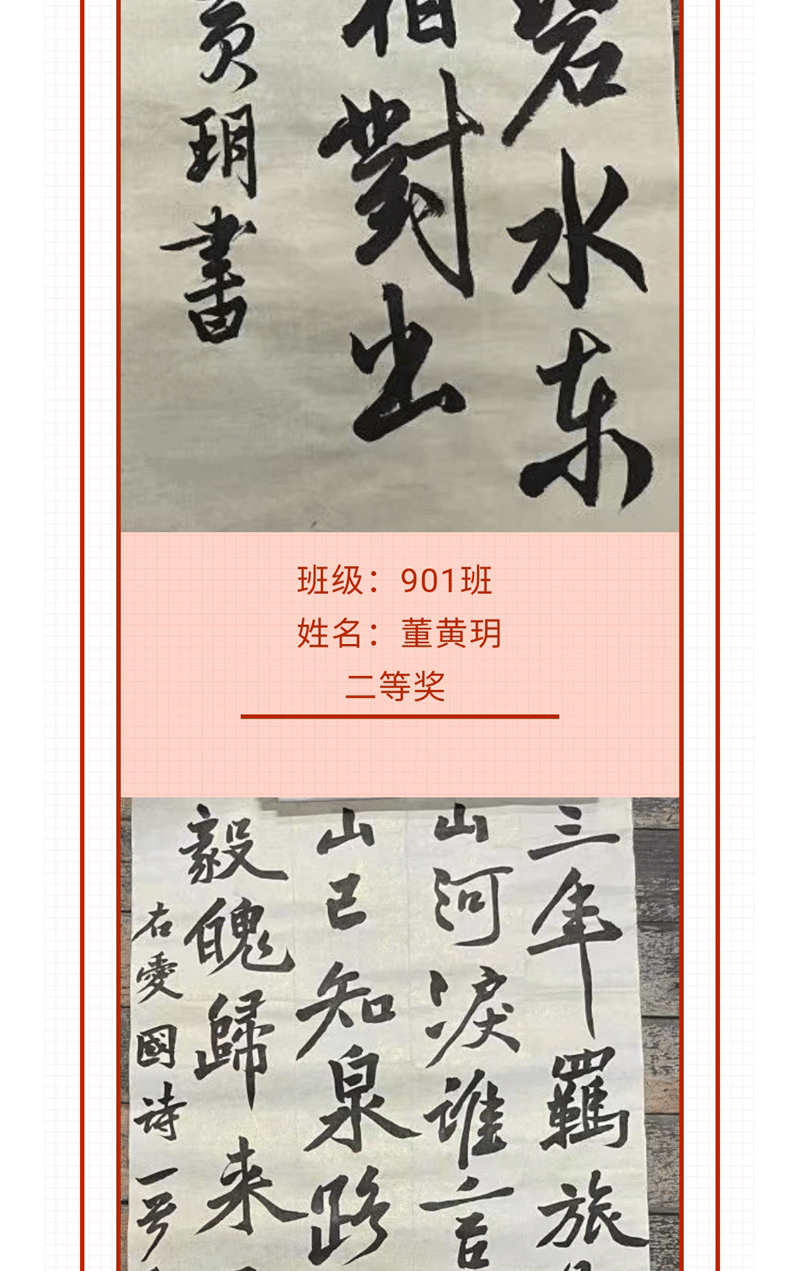 碧水东
相對出
黄玥書
班级：901班
姓名：董黄玥
二等奖
三年羈旅
山河淚誰言
山已知泉路
毅魄歸来
右愛國诗一首